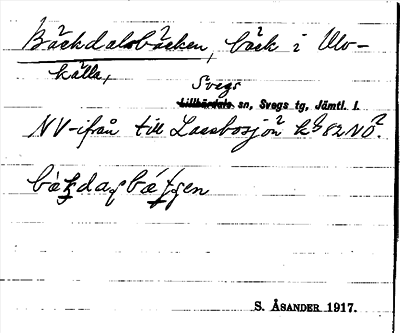 Bäckdalsbäcken, bäck i Ulv-
källa,
Svegs
Lillhärdals sn, Svegs tg, Jämtl. l.
NV-ifrån till Lassbosjön k 82 NO.
S. ÅSANDER 1917.